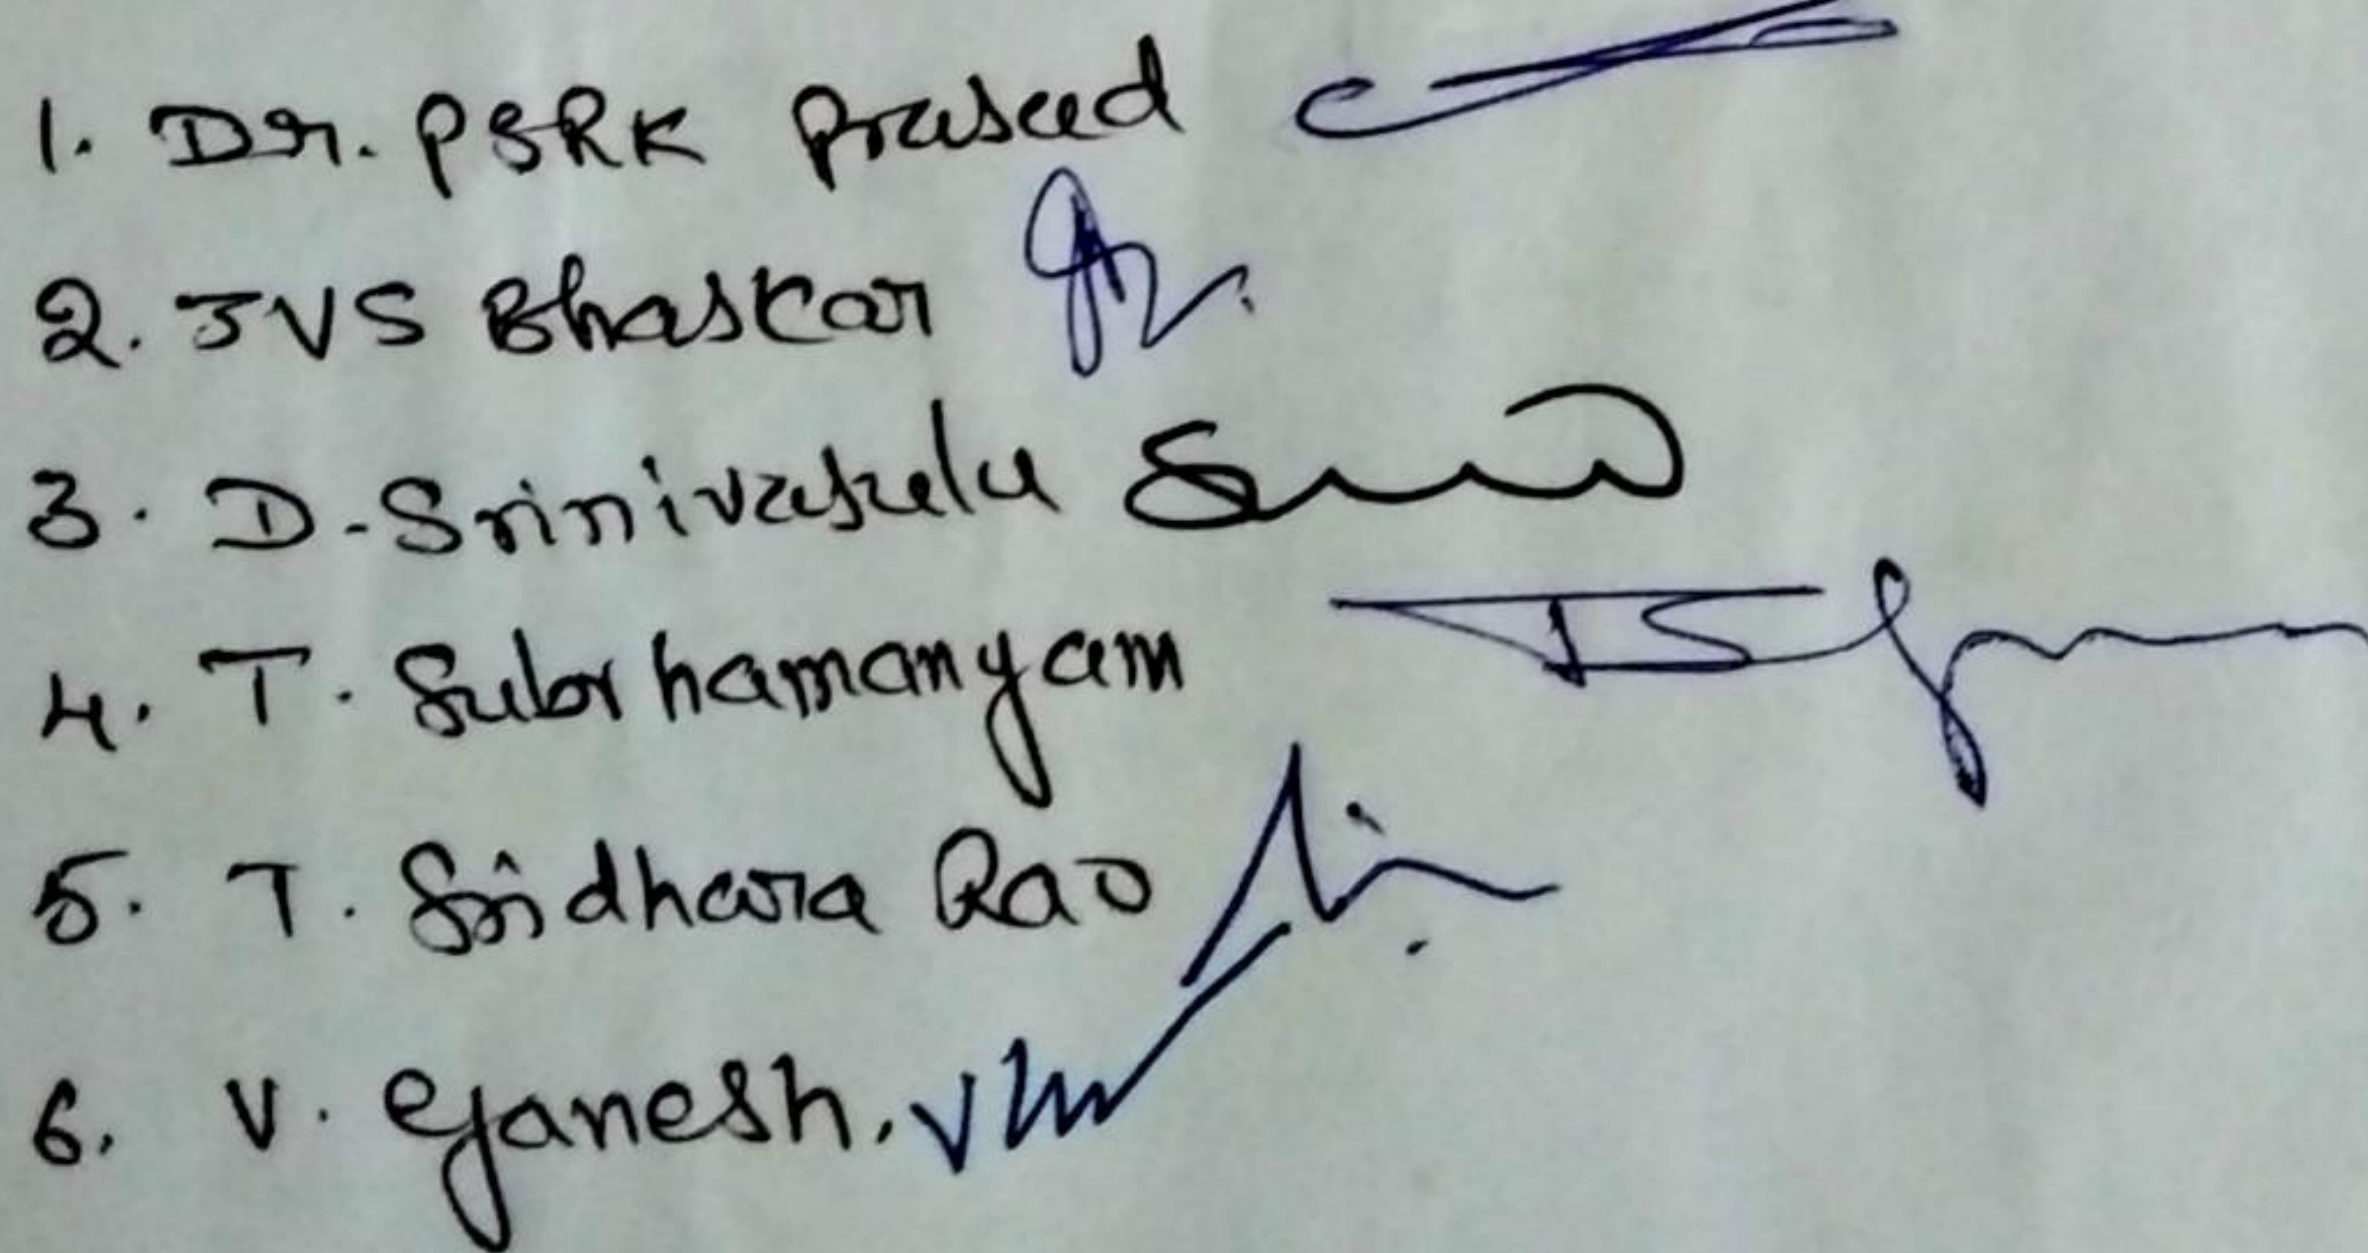 1. Dr. PSRK Prasad
2. JVS Bhaskar
3. D. Srinivasulu
4. T. Subrhamanyam
5. T. Sridhara Rao
6. V. Ganesh.